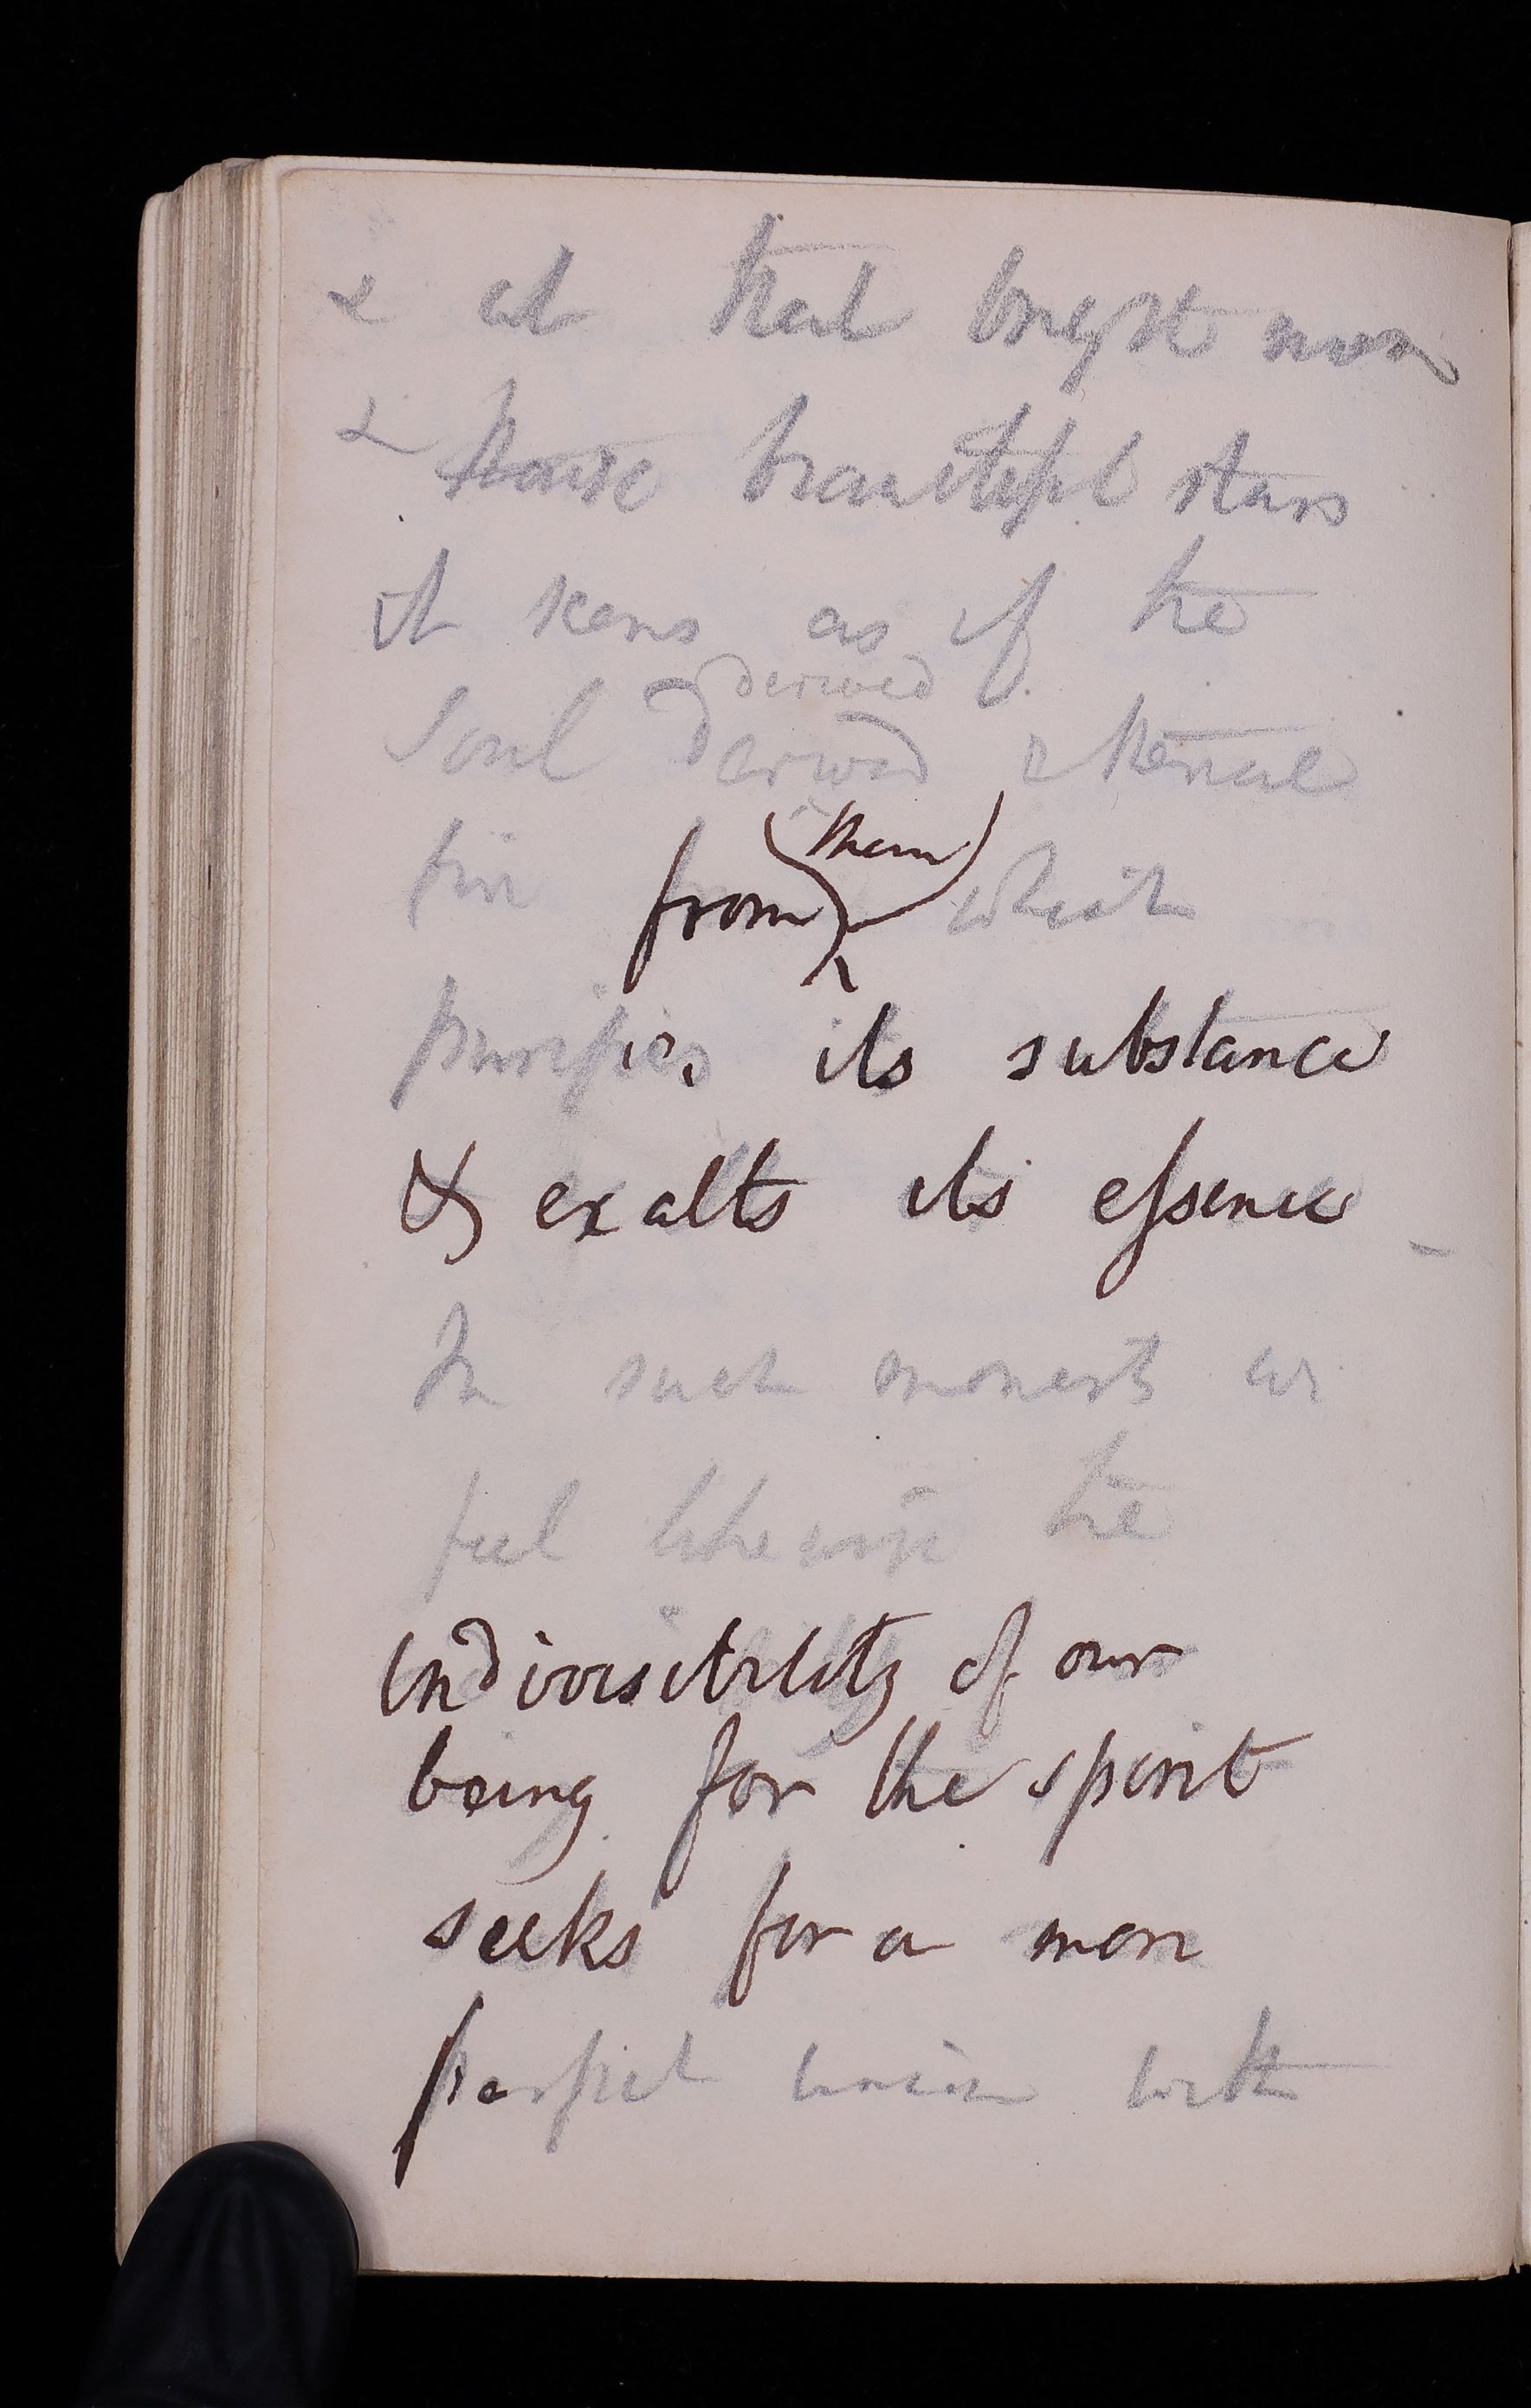 & at that bright moon
& those beautiful stars
it seems as if the
derived
Soul derived etherial
fire from them which
purifies its substance
& exalts its essence -
In such moments we
feel likewise the
indivisibility of our
being for the spirit
seeks for a more
perfect union with